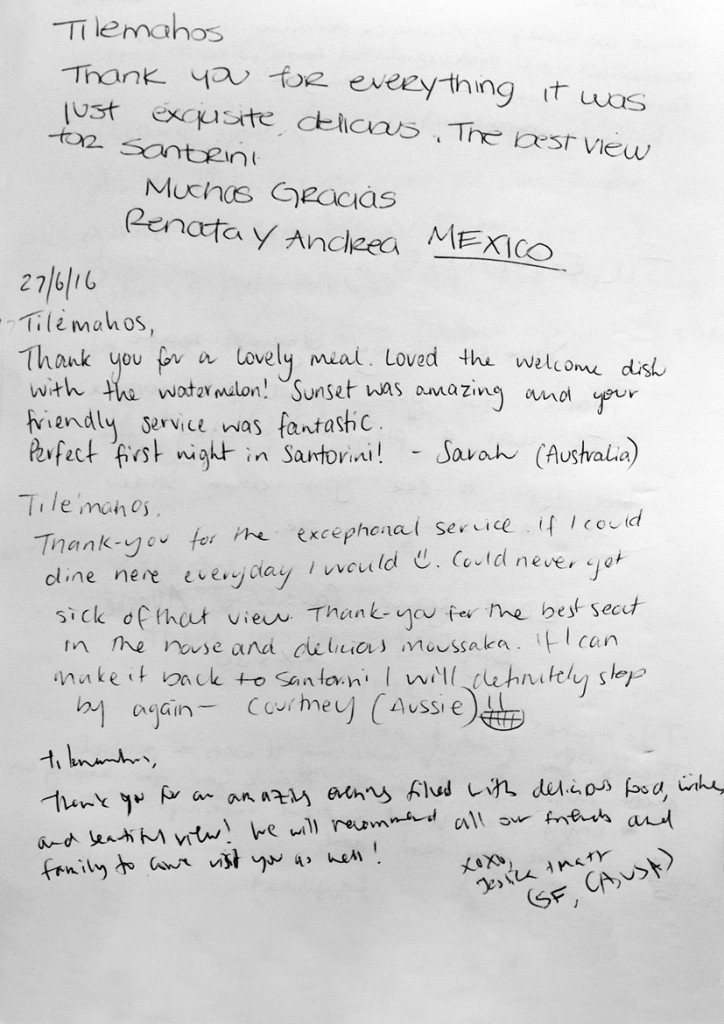 Tilemahos
Thank you for everything it was
just exquisite, delicious. The best view
for Santorini
Muchas Gracias
Renata y Andrea MEXICO
27/6/16
Tilémahos,
Thank you for a lovely meal. Loved the welcome dish
with the watermelon! Sunset was amazing and your
friendly service was fantastic.
Perfect first night in Santorini! - Sarah (Australia)
Tilémahos,
Thank-you for the exceptional service. If I could
dine here everyday I would ☺. Could never get
sick of that view. Thank-you for the best seat
in the house and delicious moussaka. If I can
make it back to Santorini I will definitely stop
by again - Courtney (Aussie)
Tilemahos,
Thank you for an amazing evening filled with delicious food, wine,
and beautiful view! We will recommend all our friends and
family to come visit you as well!
xoxo,
Jessica + Matt
(SF, CA, USA)